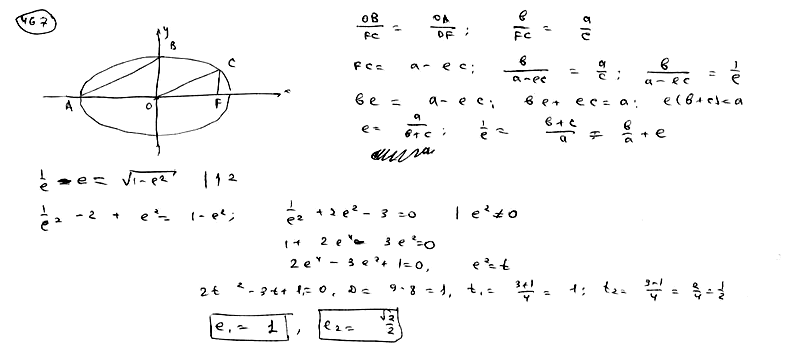 467
y
B
C
A
O
F
x
OB/FC = OA/OF; в/FC = a/c
FC = a - ec; в/(a-ec) = a/c; в/(a-ec) = 1/e
вe = a - ec; вe + ec = a; e(в+c) = a
e = a/(в+c); 1/e = (в+c)/a = в/a + e
1/e - e = √(1-e²) | ↑ 2
1/e² - 2 + e² = 1 - e²; 1/e² + 2e² - 3 = 0 | e² ≠ 0
1 + 2e⁴ - 3e² = 0
2e⁴ - 3e² + 1 = 0, e² = t
2t² - 3t + 1 = 0, D = 9 - 8 = 1, t₁ = (3+1)/4 = 1; t₂ = (3-1)/4 = 2/4 = 1/2
e₁ = 1, e₂ = √2/2